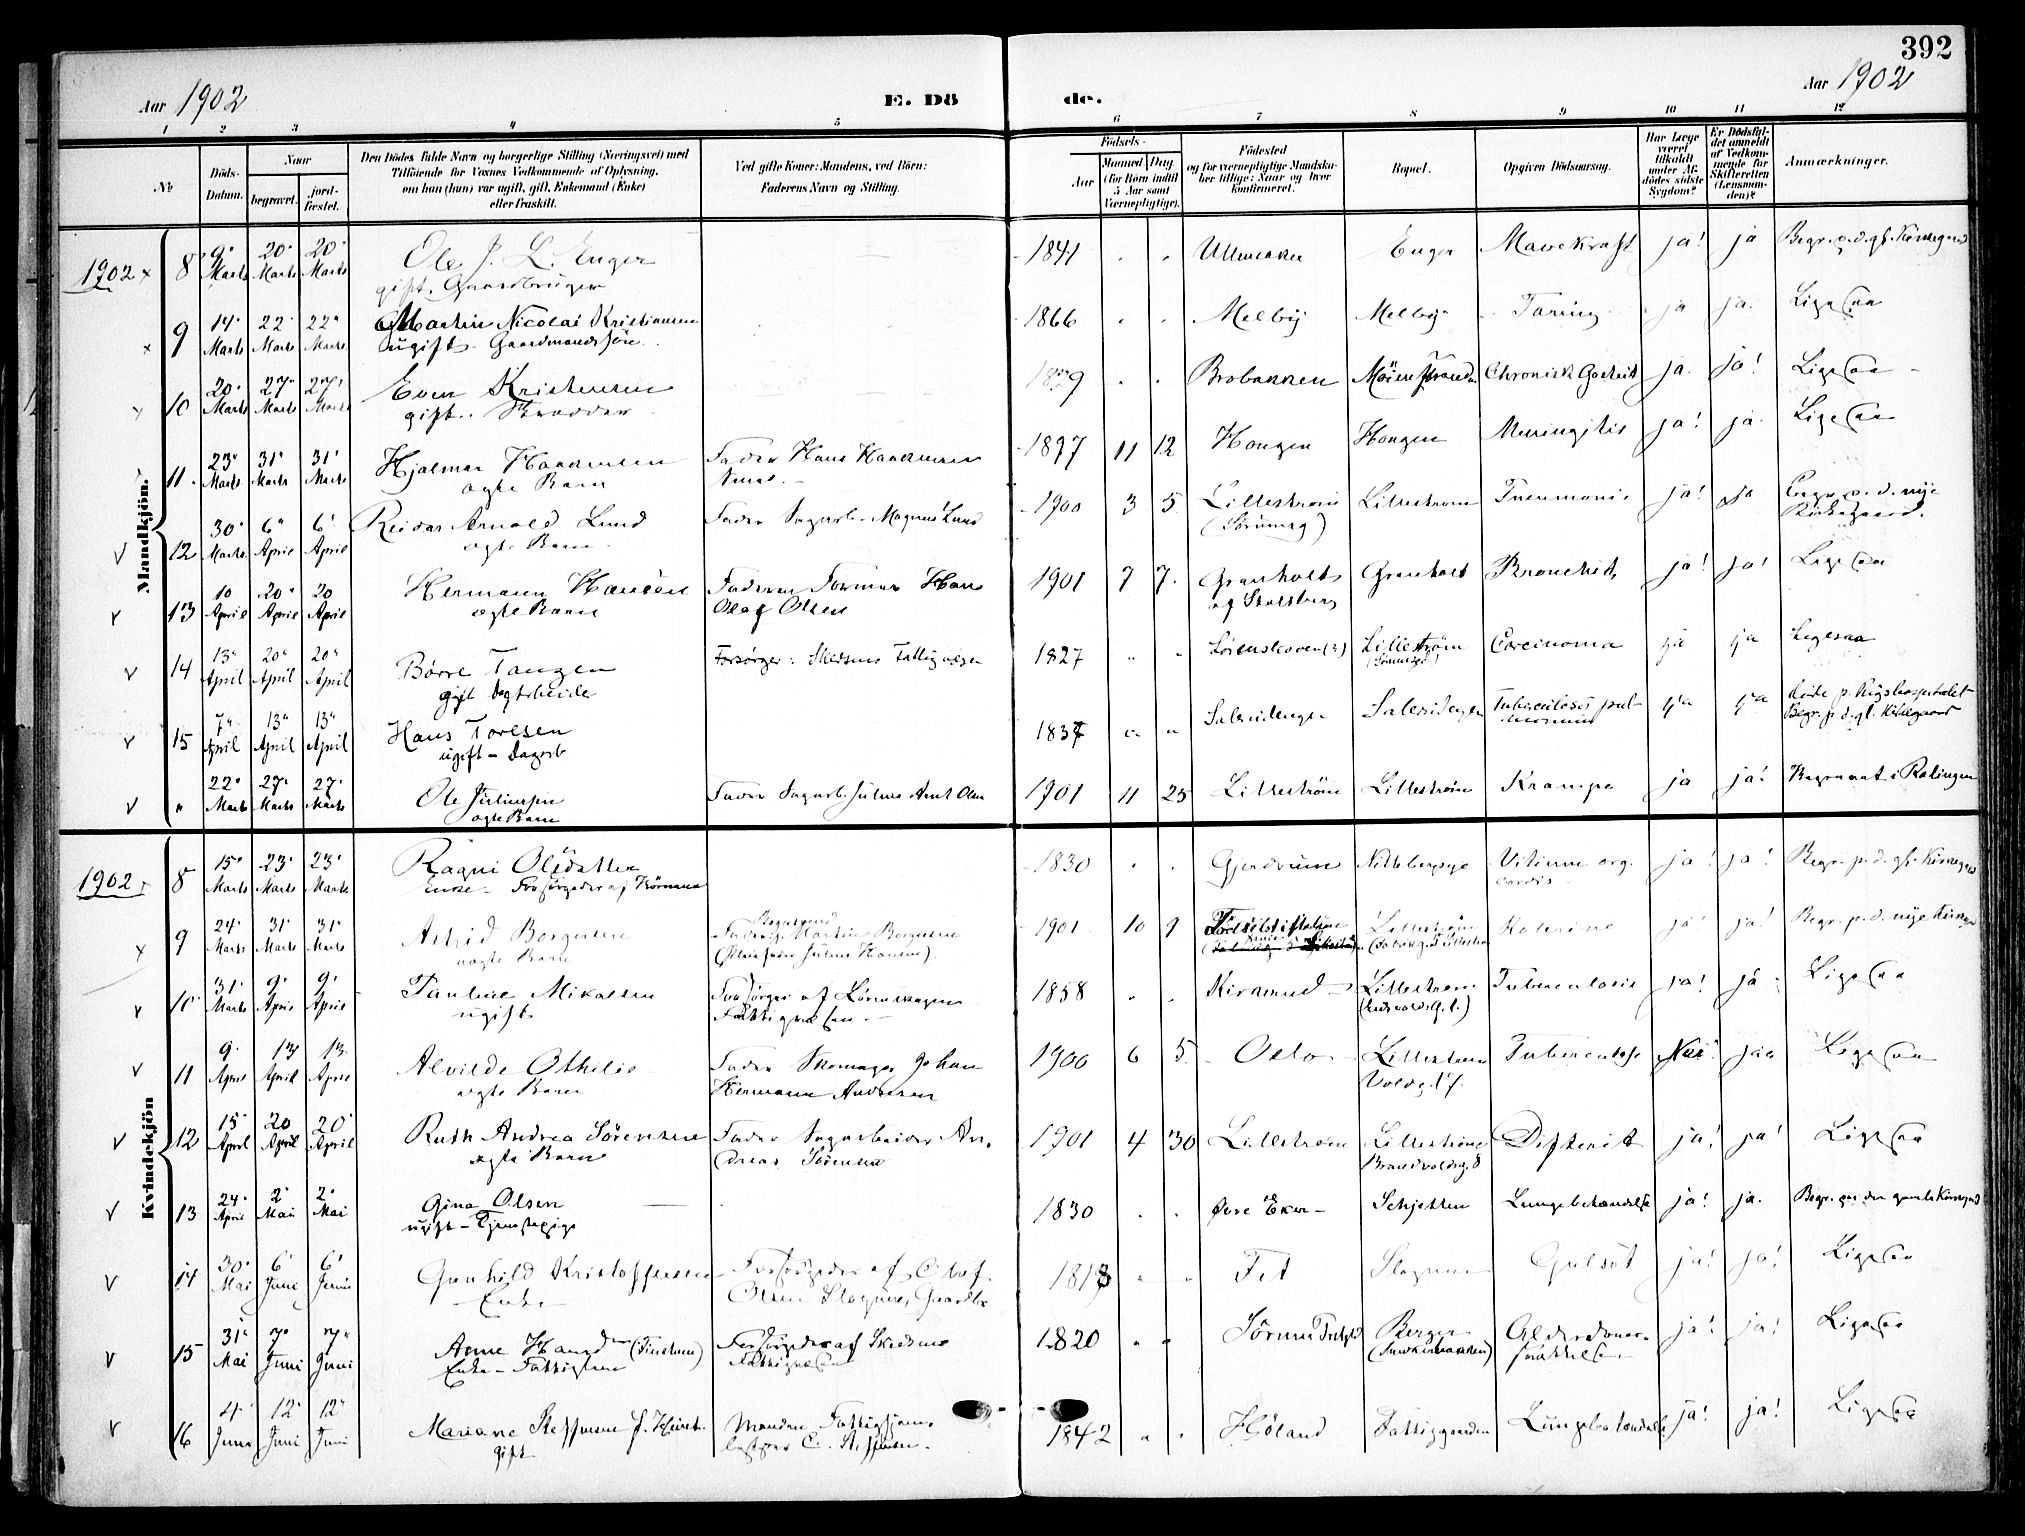 392
Aar 1902
E. Dö
de.
Aar 1902
1 2 3 4 5 6 7 8 9 10 11 12
№
Döds-Datum.
Naar
begravet.
jord-fæstet.
Den Dödes fulde Navn og borgerlige Stilling (Næringsvei) med
Tilföiende for Voxnes Vedkommende af Oplysning,
om han (hun) var ugift, gift, Enkemand (Enke)
eller fraskilt.
Ved gifte Koner: Mandens, ved Börn:
Faderens Navn og Stilling.
Födsels-
Aar
Maaned Dag.
(for Börn indtil
5 Aar samt
Værnepligtige).
Födested
og for værnepligtige Mandska-
ber tillige: Naar og hvor
konfirmeret.
Bopæl.
Opgiven Dödsaarsag.
Har Læge
været
tilkaldt
under Af-
dödes sidste
Sygdom?
Er Dödsfal-
det anmeldt
af Vedkom-
mende for
Skifteretten
(Lensman-
den)?
Anmærkninger.
Mandkjön.
1902 8 9 Marts 20 Marts 20 Marts Ole J. L. Enger 1841 Ullensaker Enger Mavekræft ja! ja Begr. p. d. gl. Kirkegaard
gift. Gaardbruger
9 14 Marts 22 Marts 22 Marts Martin Nicolai Kristiansen 1866 Melby Melby Tæring ja ja. Ligesaa
ugift. Gaardmandssøn
10 20 Marts 27 Marts 27 Marts Even Kristensen Brobakken Chronisk ja. ja! Ligesaa
gift. Skrædder
11 23 Marts 31 Marts 31 Marts Hjalmar Haakensen Fader Hans Haakensen 1897 11 12 Hougen Hougen Meningitis ja! ja. Ligesaa
ægte Barn
12 30 Marts 6 April 6 April Reidar Arnold Lund Fader Sagarb. Magnus Lund 1900 3 5 Lillestrøm Lillestrøm Pneumoni ja! ja Begr. p. d. nye
ægte Barn Kirkegaard.
13 10 April 20 April 20 April Hermann Hansen Faderen Former Hans 1901 7 7. Granholt Granholt Bronchit ja! ja! Ligesaa
ægte Barn Olaf Olsen
14 13 April 20 April 20 April Børre Tangen Forsørger: Skedsmo Fattigvæsen 1827 Lillestrøm Carcinoma ja ja Ligesaa
gift Dagarbeider
15 7 April 13 April 13 April Hans Toresen 1837 Tuberculosis pul- ja ja døde p. Rigshospitalet
ugift - Dagarb monum Begr. p. d. gl. Kirkegaard
22 Marts 27 Marts 27 Marts Ole Juliussen Fader Sagarb. Julius Olsen 1901 11 25 Lillestrøm Lillestrøm Krampe ja ja! Begravet i Rælingen
ægte Barn
Kvindekjön
1902 8 15 Marts 23 Marts 23 Marts Ragni Olsdatter 1830 Gjerdrum Nitteberg Vitium org. ja! ja! Begr. p. d. gl. Kirkegaard
Enke - Forsörgedes af Börnene cordis
9 24 Marts 31 Marts 31 Marts Astrid Borgersen Martin Borgersen 1901 10 9 Fødselsstiftelsen Lillestrøm ja ja! Begr. p. d. nye Kirkegd
uægte Barn (Julius Hansen)
10 31 Marts 9 April 9 April Pauline Mikalsen Forsörges af Lörenskogens 1858 Lillestrøm Tuberculosis ja! ja Ligesaa
ugift Fattigvæsen.
11 9 April 13 April 13 April Alvilde Othilie Fader Skomager Johan 1900 6 5 Oslo Lillestrøm Tuberculose Nei ja Ligesaa
ægte Barn Hermann Andersen Voldg. 17.
12 15 April 20 April 20 April Ruth Andrea Sörensen Fader Sagarbeider An- 1901 4 30 Lillestrøm Lillestrøm Difterit ja! ja! Ligesaa
ægte Barn dreas Sörensen Brandvoldsg. 8
13 24 April 2 Mai 2 Mai Gina Olsen 1830 Øvre Eker Schjetten Lungebetændelse ja! ja. Begr. paa den gamle Kirkegd
ugift - Tjenstepige
14 30 Mai 6 Juni 6 Juni Gunhild Kristoffersen Forsörgedes af Olaf 1818 Fet Gulsot ja! ja! Ligesaa
Enke Olsen Gaardbr
15 31 Mai 7 Juni 7 Juni Anne Forsörgedes af Skedsmo 1820 Sörum Berger Alderdoms- ja! ja! Ligesaa
Enke - Fattiglem Fattigvæsen svækkelse
16 4 Juni 12 Juni 12 Juni Mariane Steffensen Manden Fattighjems- 1842 Høland Fattiggaarden Lungebetændelse ja! ja! Ligesaa
gift bestyrer C. Steffensen.